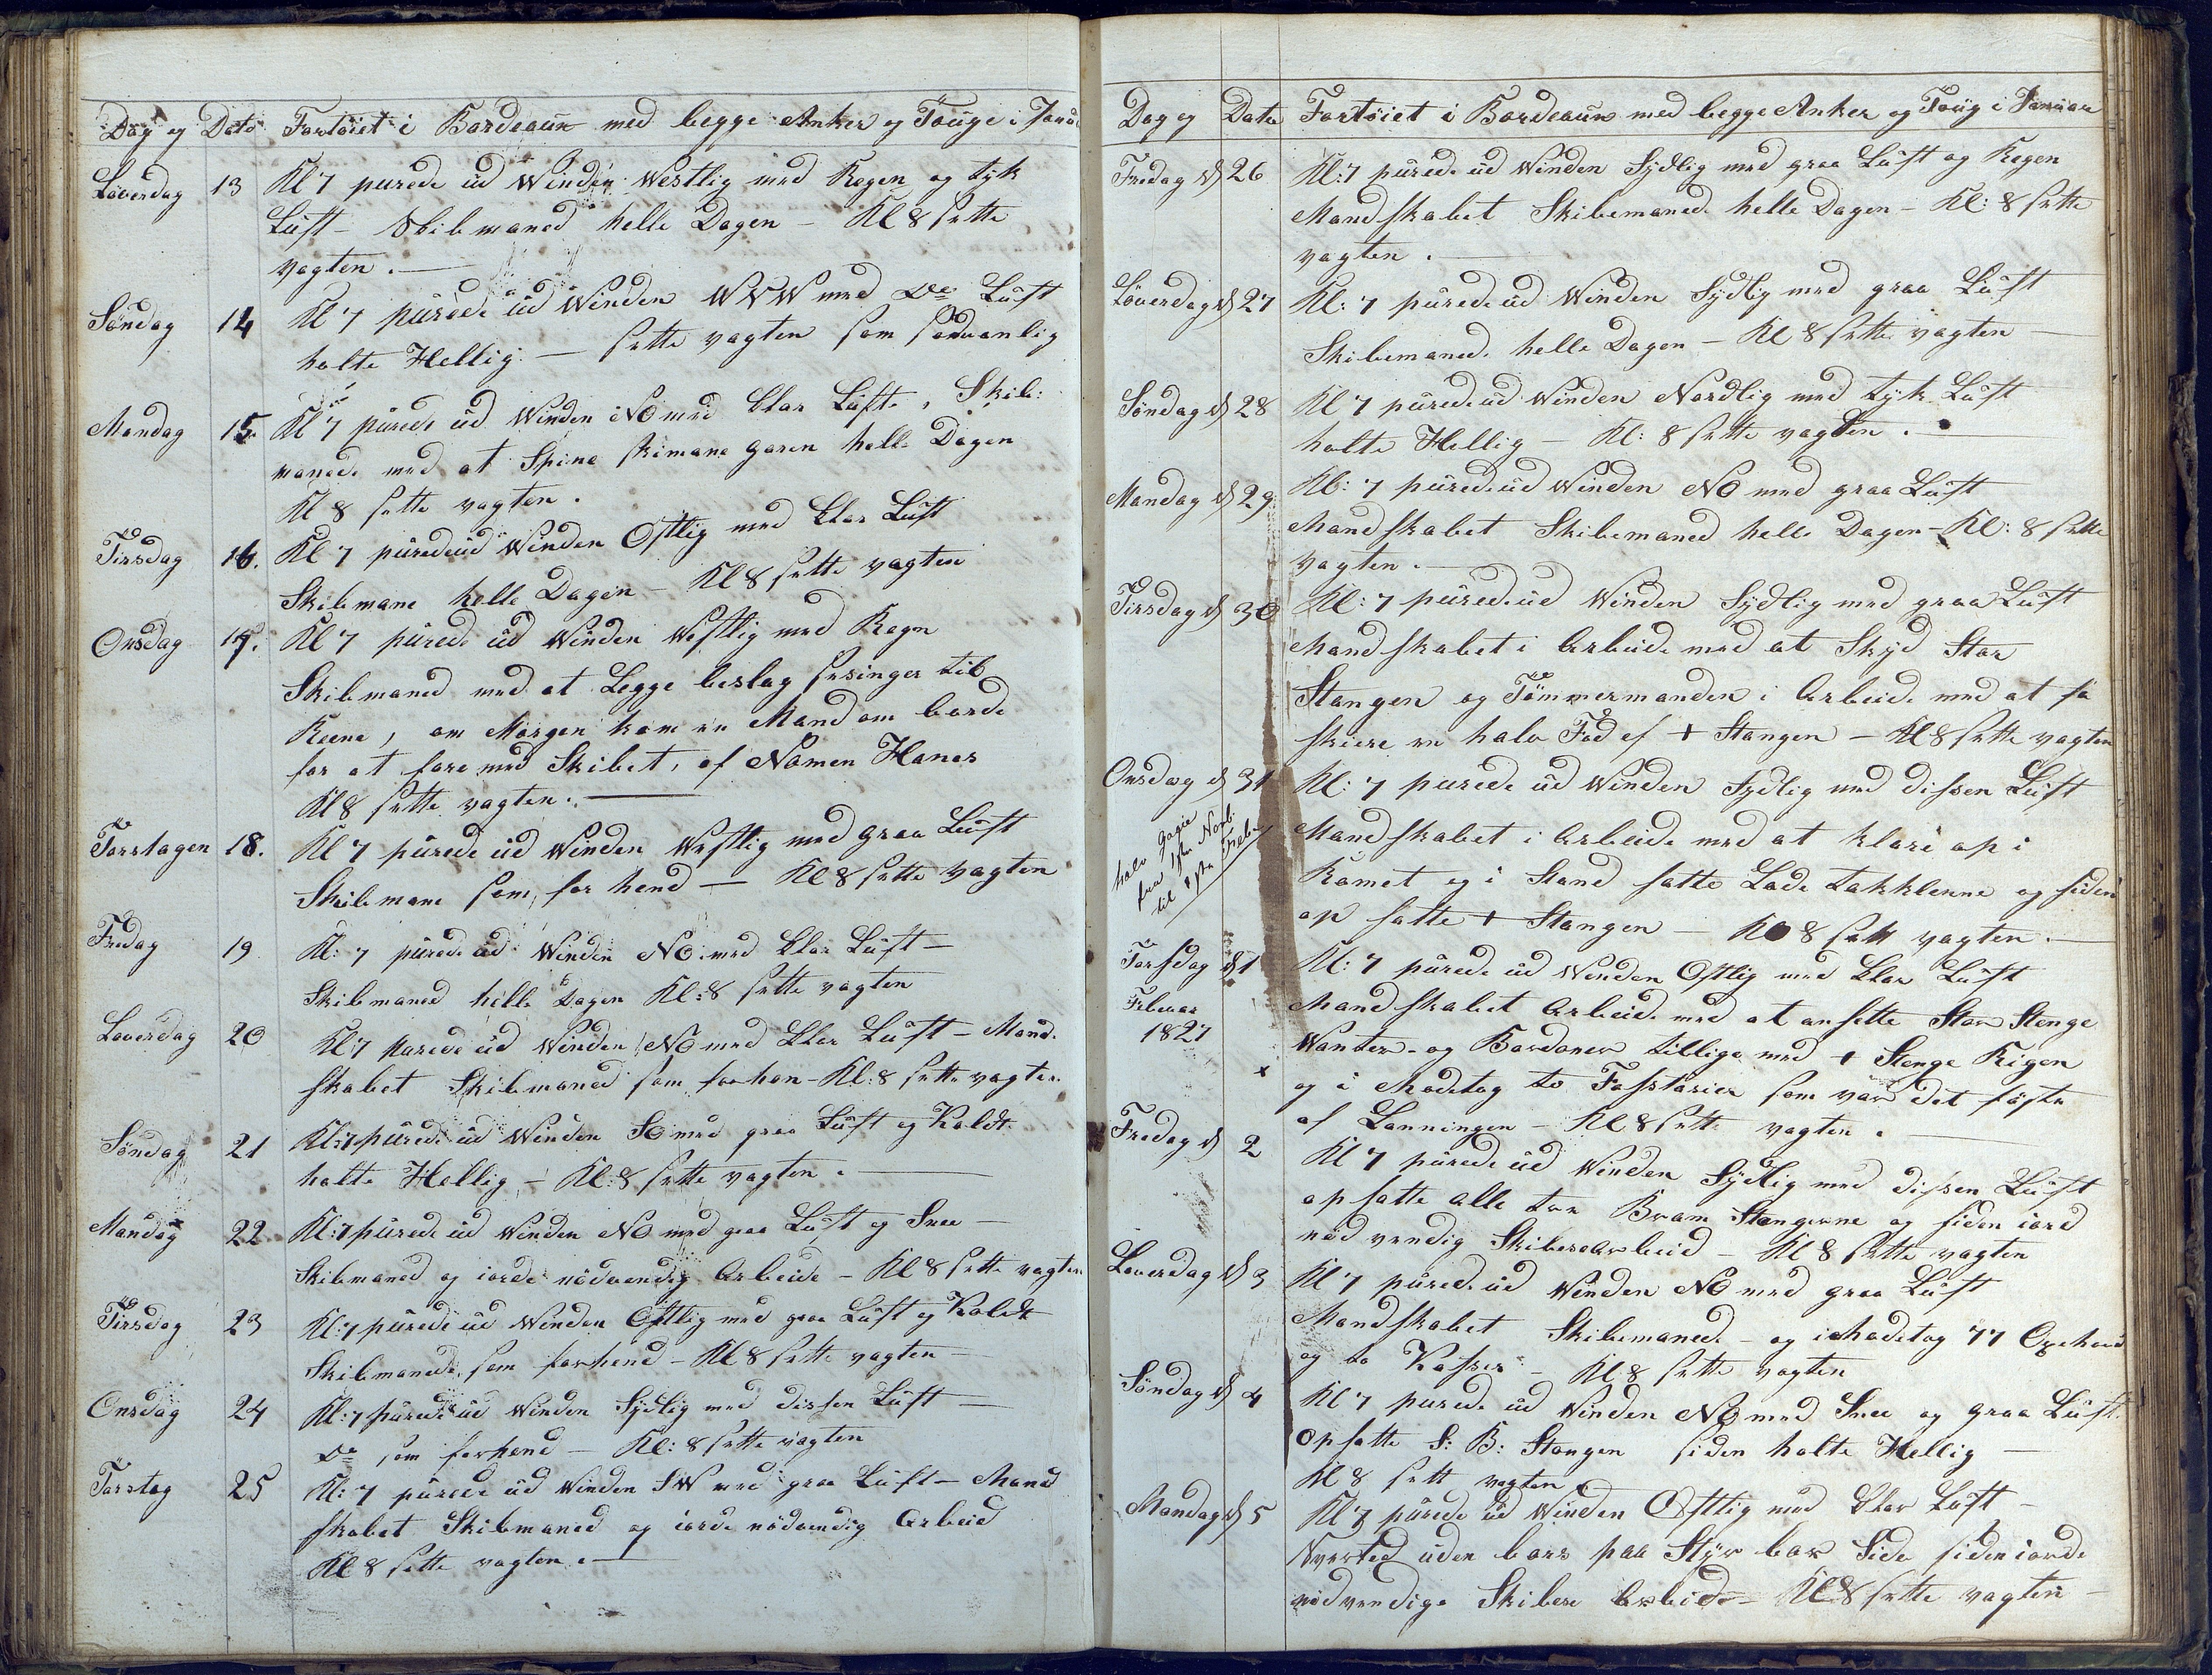 Dag og Dato Fortöiet i Bordeaux med begge Anker og Touge i Janu
Löverdag 13 Kl 7 purede ud Winden Westlig med Regen og tyk
Luft - Skibmaned helle Dagen - Kl 8 sette
vagten. —
Söndag 14 Kl 7 purede ud Winden WNW med Do Luft
holte Hellig. — sette vagten som sedvanlig
Mandag 15. Kl 7 purede ud Winden NO med klar Luft, Skib:
manede med at Spine skimans garen helle Dagen
Kl 8 sette vagten.
Tirsdag 16. Kl 7 purede ud Winden Ostlig med klar Luft
Skibmane helle Dagen - Kl 8 sette vagten
Onsdag 17. Kl 7 purede ud Winden Westlig med Regn
Skibmaned med at Legge beslag sesinger til
Reene, om Morgen kom en Mand om borde
for at fare med Skibet, af Namen Hanes
Kl 8 sette vagten. —
Torstagen 18. Kl 7 purede ud Winden Westlig med graa Luft
Skibmane som for hend — Kl 8 sette vagten
Fredag 19 Kl: 7 purede ud Winden NO. med klar Luft —
Skibmaned helle Dagen Kl: 8 sette vagten
Loverdag 20 Kl 7 purede ud Winden NO med klar Luft - Mand.
skabet Skibmaned som forhen - Kl: 8 sette vagten.
Söndag 21 Kl: 7 purede ud Winden SO med graa Luft og Koldt
holte Hellig, - Kl: 8 sette vagten. —
Mandag 22 Kl: 7 purede ud Winden NO med graa Luft og Snee —
Skibmaned og iorde nödvendig Arbeide - Kl 8 sette vagten
Tirsdag 23 Kl: 7 purede ud Winden Ostlig med graa Luft og Koldt
Skibmanede, som forhend - Kl 8 sette vagten —
Onsdag 24 Kl: 7 purede ud Winden Sydlig med dissen Luft —
Do som forhend - Kl: 8 sette vagten
Torstag 25 Kl: 7 purede ud Winden SW med graa Luft - Mand
skabet Skibmaned og iorde nödvendig Arbeid
Kl 8 sette vagten. —
Dag og Dato Fortöiet i Bordeaux med begge Anker og Toug i Januar
Fredag d 26 Kl: 7 purede ud Winden Sydlig med graa Luft og Regen
Mandskabet Skibemanede helle Dagen - Kl: 8 sette
vagten. —
Löverdag d 27 Kl: 7 purede ud Winden Sydlig med graa Luft
Skibemaned. helle Dagen - Kl 8 sette vagten —
Söndag d 28 Kl 7 purede ud Winden Nordlig med tyk Luft
holte Hellig - Kl: 8 sette vagten. —
Mandag d 29 Kl: 7 purede ud Winden NO med graa Luft
Mandskabet Skibemaned helle Dagen - Kl: 8 sette
vagten. —
Tirsdag d 30 Kl: 7 purede ud Winden Sydlig med graa Luft
Mandskabet i Arbeide med at Skyd Stor
Stangen og Tömmermanden i Arbeide med at
skiere en halv Fod af + Stangen - Kl 8 sette vagten
Onsdag d 31 Kl: 7 purede ud Winden Sydlig med dissen Luft
halv gagie
fra 1ste Novb:
til 1ste Feb:
Mandskabet i Arbeide med at klare op i
Romet og i Stand satte Lade takklerne og siden
op satte + Stangen — Kl 8 sett vagten. —
Torsdag d 1 Kl: 7 purede ud Winden Ostlig med klar Luft
Februar
1827
Mandskabet Arbeide med at ansette Stor Stenge
Wanter - og Bardoner tillige med + Stenge Rigen
x og i Modetog to som var det
af Lanningen - Kl 8 sette vagten. —
Fredag d 2 Kl 7 purede ud Winden Sydlig med dissen Luft
opsatte alle tre Bram Stangerne og siden iord
nödvendig Skibesarbeid - Kl 8 sette vagten
Loverdag d 3 Kl 7 purede ud Winden NO med graa Luft
Mandskabet Skibemanede - og i Modetog 77 Oxehoved
og to Kasser - Kl 8 sette vagten
Söndag d 4 Kl 7 purede ud Winden NO med Snee og graa Luft.
opsatte S: B: Stangen siden holte Hellig —
Kl 8 sett vagten
Mandag d 5 Kl 7 purede ud Winden Ostlig med klar Luft —
uden bors paa Styr bor Side siden iorde
nödvendige Skibes Arbeide - Kl 8 sette vagten —